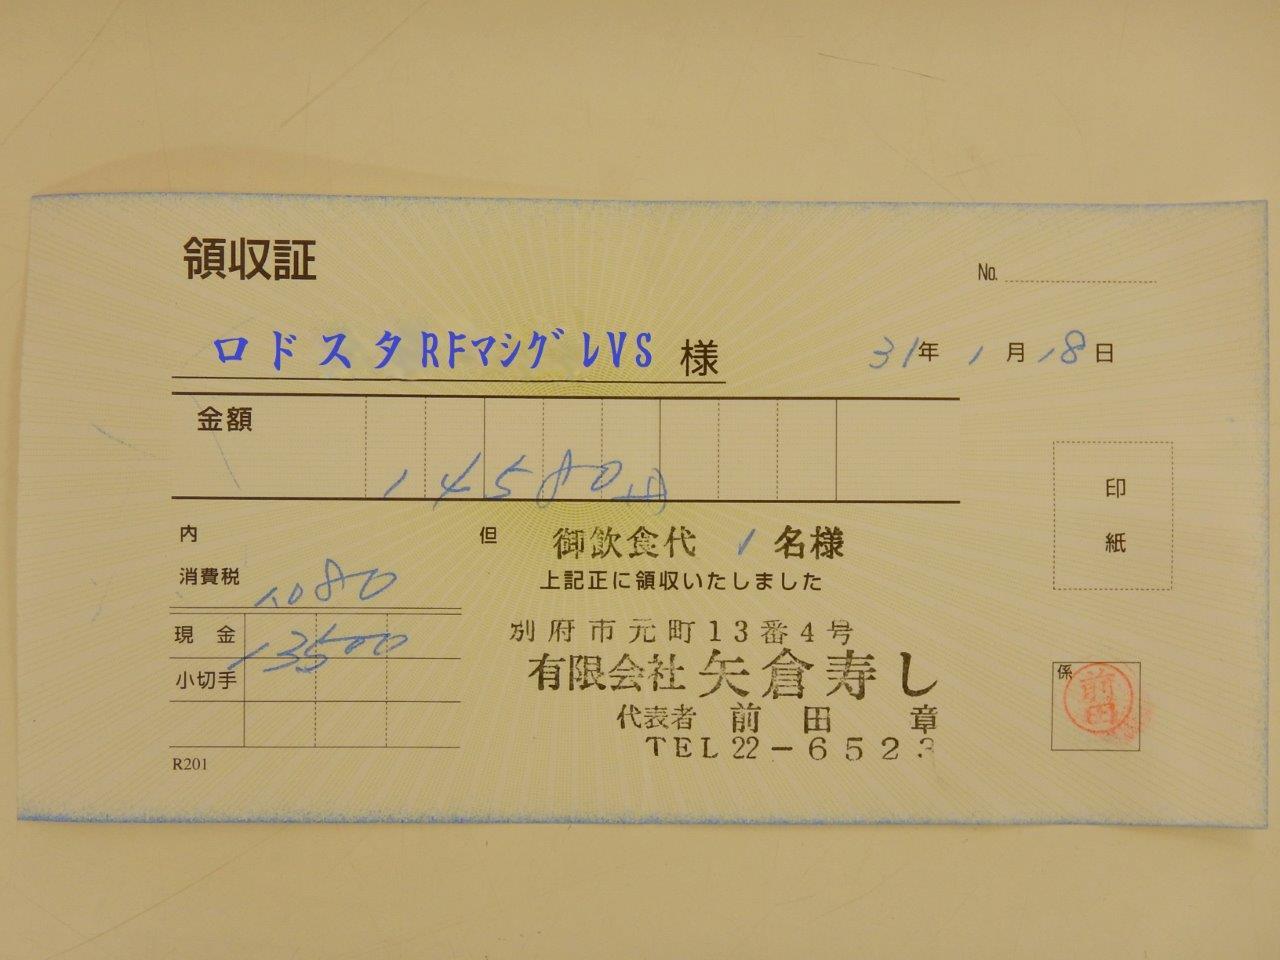 領収証
No.
ロドスタRFマシグレVS 様
31年 1月 18日
金額
14580円
印
紙
内
消費税 1,080
但 御飲食代 1名様
上記正に領収いたしました
現金 13500
小切手
別府市元町13番4号
有限会社 矢倉寿し
代表者 前田 章
TEL 22-6523
係
前田
R201